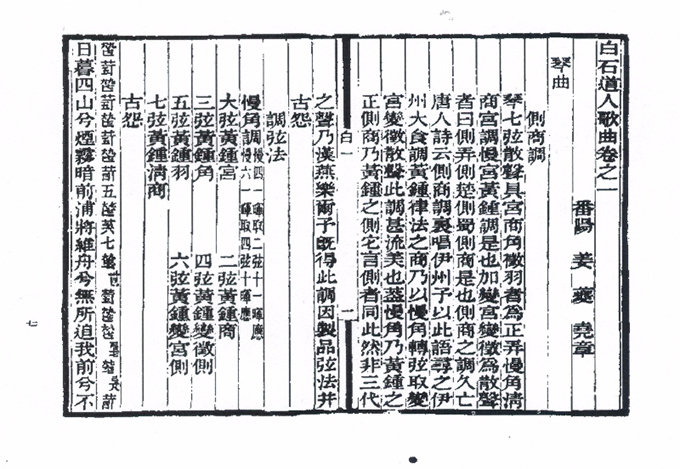 白石道人歌曲卷之一
番陽 姜夔 堯章
琴曲
側商調
琴七弦散聲具宮商角徵羽者為正弄慢角清
商宮調慢宮黃鍾調是也加變宮變徵為散聲
者曰側弄側楚側蜀側商是也側商之調久亡
唐人詩云側商調裏唱伊州予以此語尋之伊
州大食調黃鍾律法之商乃以慢角轉弦取變
宮變徵散聲此調甚流美也蓋慢角乃黃鍾之
正側商乃黃鍾之側它言側者同此然非三代
白一
一
之聲乃漢燕樂爾予既得此調因製品弦法并
古怨
調弦法
慢角調 慢四一暉取二弦十一暉應 慢六一暉取四弦十暉應
大弦黃鍾宮 二弦黃鍾商
三弦黃鍾角 四弦黃鍾變徵側
五弦黃鍾羽 六弦黃鍾變宮側
七弦黃鍾清商
古怨
日暮四山兮煙霧暗前浦將維舟兮無所追我前兮不
七